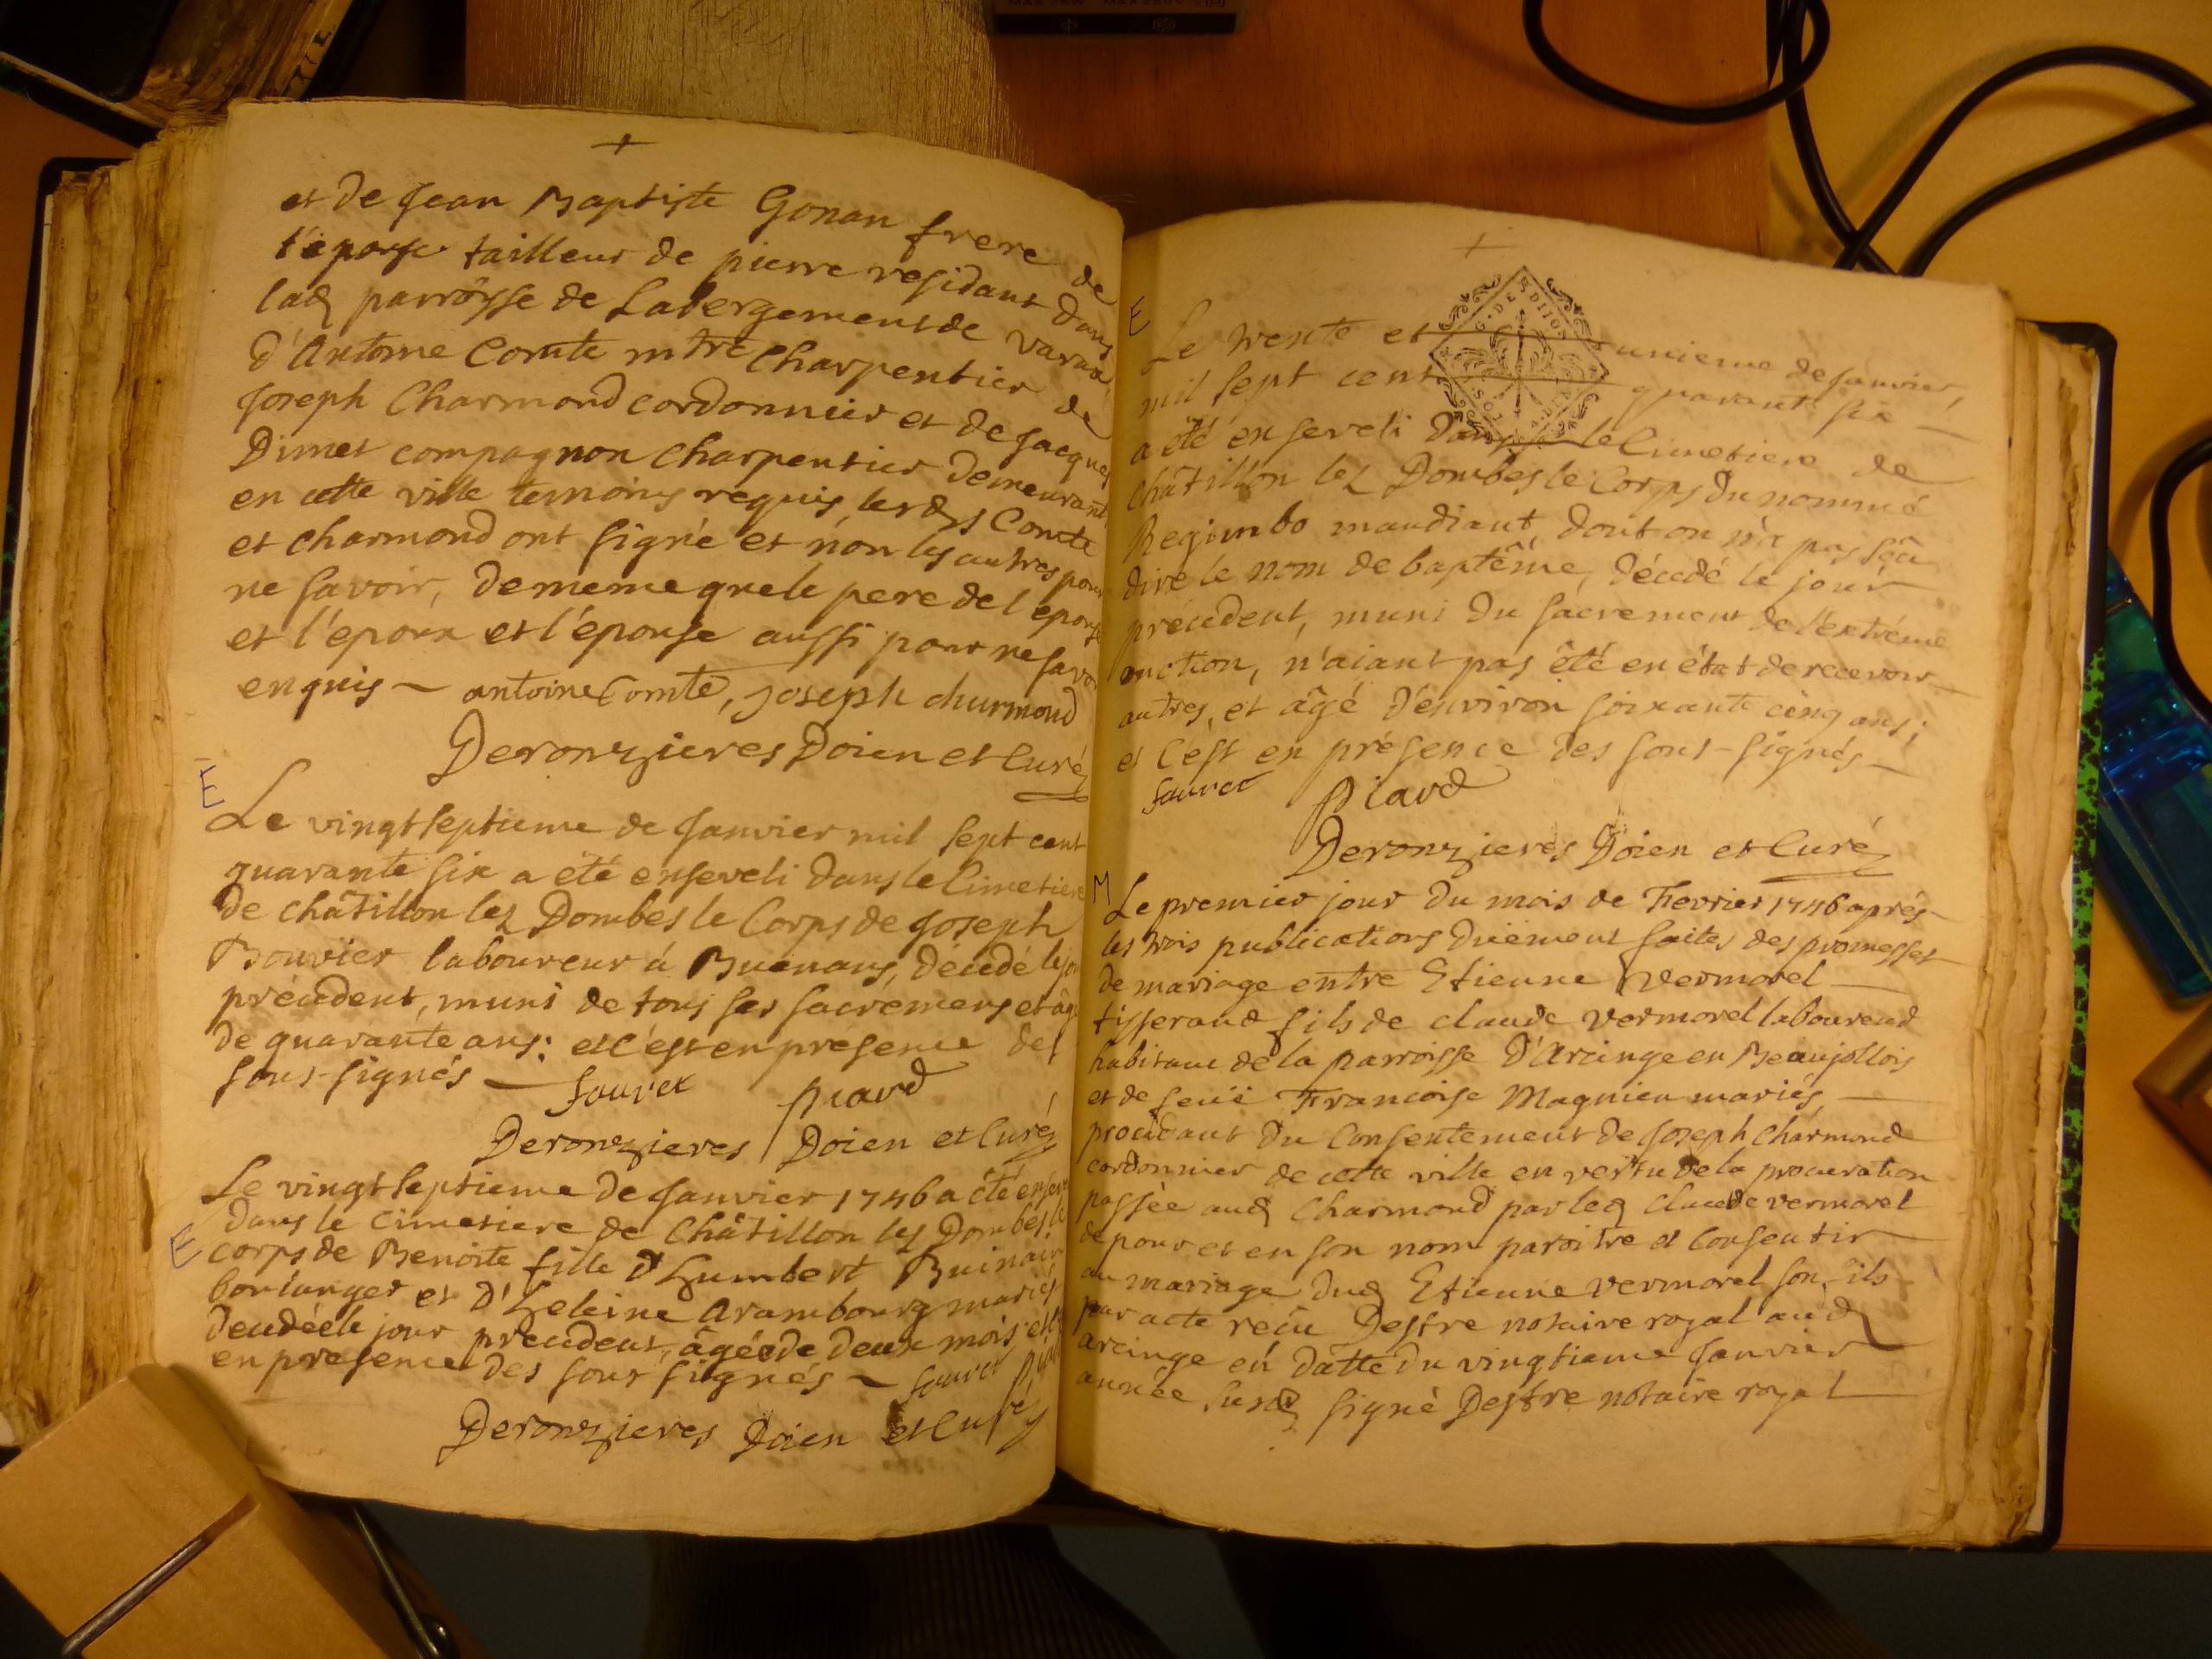 et de Jean Baptiste Gonan frere de
l'epouse tailleur de pierre residant dans
lad parroisse de Labergement de Varax
d'Antoine Comte mtre charpentier de
Joseph Charmond cordonnier et de Jacques
Dimet compagnon charpentier demeurant
en cette ville temoins requis, lesds Comte
et charmond ont signé et non les autres pour
ne savoir, de meme que le pere de l'epouse
et l'epoux et l'épouse aussi pour ne savoir
enquis — antoine Comte, Joseph churmond
Deronzieres Doien et Curé
E
Le vingt septieme de Janvier mil sept cent
quarante six a été enseveli dans le Cimetiere
de châtillon lez Dombes le Corps de Joseph
Bouvier laboureur à Buenans, décédé le jour
précédent, muni de tous ses sacrémens et âgé
de quarante ans: et c'est en presence des
sous-signés — fauret piard
Deronzieres Doien et Curé
Le vingt septieme de Janvier 1746 a été enseveli
E
dans le cimetiere de Châtillon les Dombes le
corps de Benoite fille d'humbert Buinair
boulanger et d'heleine arambourg mariés
decedée le jour precedent, âgée de deux mois et c'est
en presence des sous signés — fauret piard
Deronzieres Doien et Curé
E
G. DE DIJON
SOL
Le trente et unieme de Janvier,
mil sept cent quarante six —
a été enseveli dans le Cimetiere de
châtillon lez Dombes le Corps du nommé
Regimbo mandiant, dont on n'a pas sçû
dire le nom de baptême, décédé le jour
précédent, muni du sacrement de l'extréme
onction, n'aiant pas été en état de recevoir
autres, et âgé d'environ soixante cinq ans;
et c'est en présence des sous-signés —
fauret piard
Deronzieres Doien et Curé
M
Le premier jour du mois de Fevrier 1746 aprés
les trois publications duëment faites des promesses
de mariage entre Etienne Vermorel —
tisserand fils de claude vermorel laboureur
habitant de la parroisse d'Arcinge en Beaujollois
et de feuë Francoise Magnien mariés —
procédant du Consentement de Joseph charmond
cordonnier de cette ville en vertu de la procuration
passée aud Charmond par led Claude vermorel
de pour et en son nom paroitre et Consentir
au mariage dud Etienne vermorel son fils
par acte reçu Destre notaire royal aud
arcinge en datte du vingtieme Janvier
année susd signé Destre notaire royal —